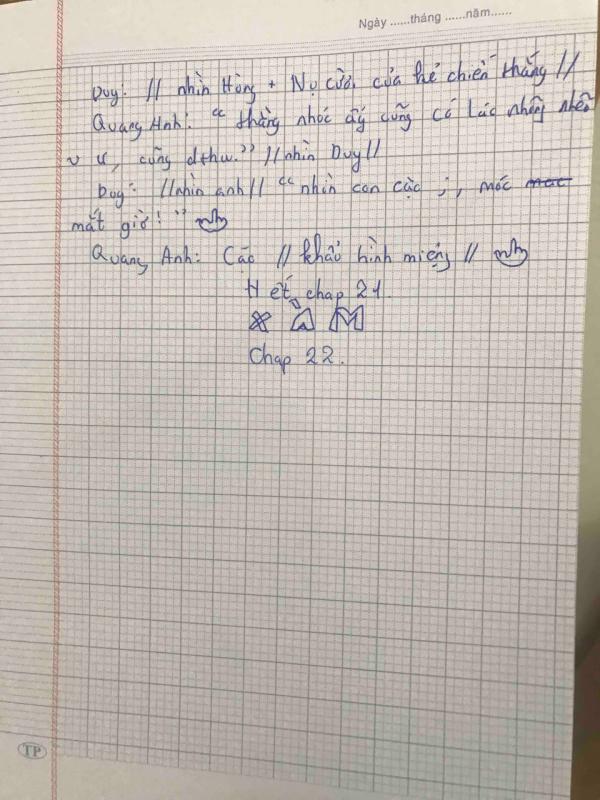 Ngày ......tháng ......năm......
Duy: // nhìn Hùng + Nụ cười của kẻ chiến thắng //
Quang Anh: “ thằng nhóc ấy cũng có lúc nhõng nhẽo
ư, cũng dthw.” // nhìn Duy //
Duy: // nhìn anh // “ nhìn con cặc ;, móc
mắt giờ! ”
Quang Anh: Các // khẩu hình miệng //
Hết chap 21.
XÀM
Chap 22.
TP